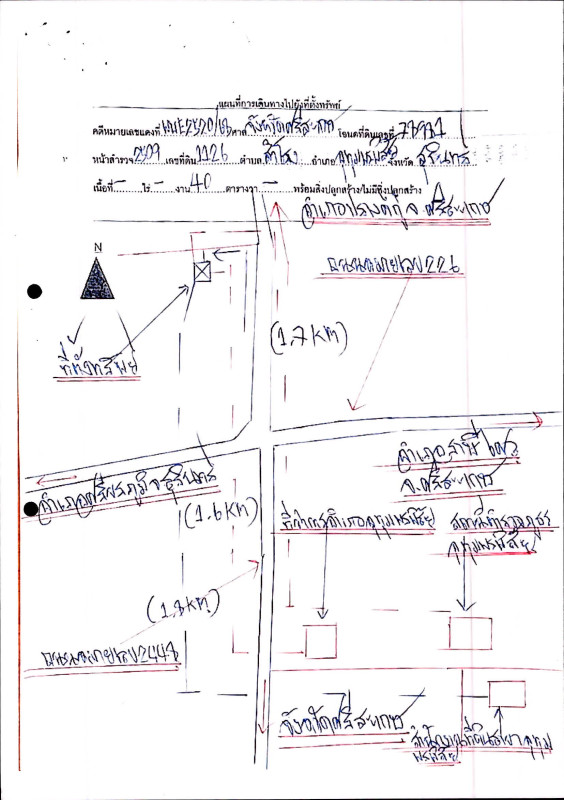 แผนที่การเดินทางไปยังที่ตั้งทรัพย์
คดีหมายเลขแดงที่ ศาล จังหวัดศรีสะเกษ โฉนดที่ดินเลขที่
หน้าสำรวจ 2509 เลขที่ดิน 1126 ตำบล สำโรง อำเภอ อุทุมพรพิสัย จังหวัด สุรินทร์
เนื้อที่ - ไร่ - งาน 40 ตารางวา - พร้อมสิ่งปลูกสร้าง/ไม่มีสิ่งปลูกสร้าง
อำเภอปรางค์กู่ จ.ศรีสะเกษ
N
ถนนหมายเลข 226
(1.7 km)
ที่ตั้งทรัพย์
อำเภอ
จ.ศรีสะเกษ
อำเภอศีขรภูมิ จ.สุรินทร์
(1.6 km)
ที่ว่าการอำเภออุทุมพรพิสัย
สถานีตำรวจภูธร
อุทุมพรพิสัย
(1.8 km)
ถนนหมายเลข
จังหวัดศรีสะเกษ
สำนักงานที่ดินสาขาอุทุม
พรพิสัย